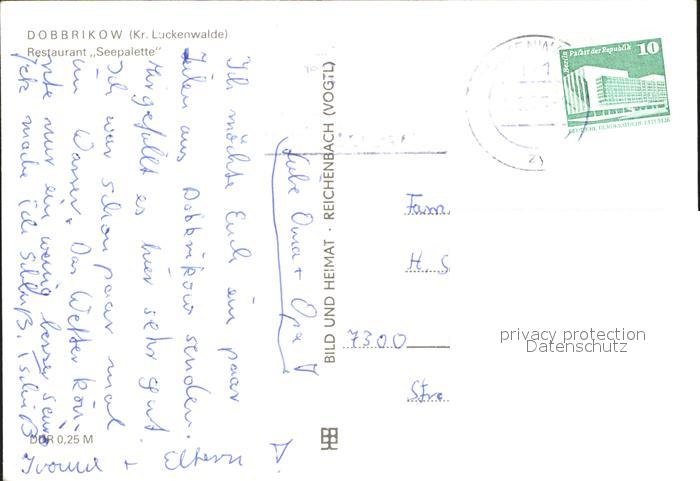 DOBBRIKOW (Kr. Luckenwalde)
Restaurant „Seepalette"
Liebe Oma + Opa!
Ich möchte Euch ein paar
Zeilen aus Dobbrikow senden.
Mir gefällt es hier sehr gut.
Ich war schon paar mal
im Wasser. Das Wetter kön-
nte nur ein wenig besser sein.
Ich mache ich Schluß. Tschüß
Yvonne + Eltern!
DDR 0,25 M
BILD UND HEIMAT · REICHENBACH (VOGTL)
Berlin Palast der Republik 10
DEUTSCHE DEMOKRATISCHE REPUBLIK
Fam.
H. S
7300
Stra
privacy protection
Datenschutz